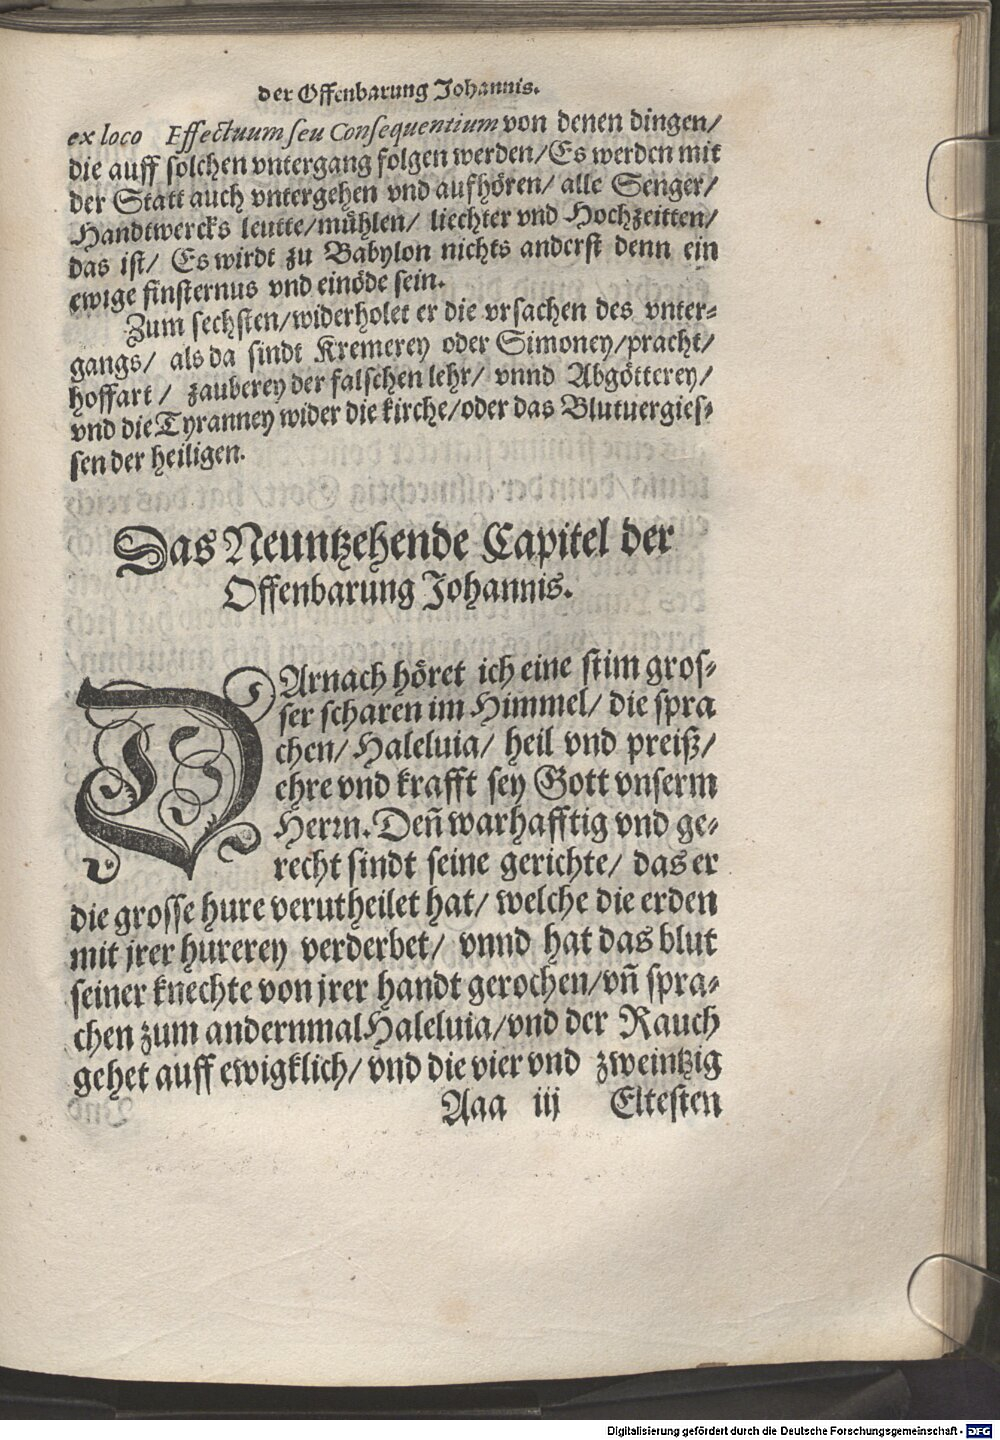 der Offenbarung Johannis.
ex loco Effectuum seu Consequentium von denen dingen/
die auff solchen vntergang folgen werden/Es werden mit
der Statt auch vntergehen vnd aufhören/ alle Senger/
Handtwercks leutte/mühlen/ liechter vnd Hochzeitten/
das ist/ Es wirdt zu Babylon nichts anderst denn ein
ewige finsternus vnd einöde sein.
Zum sechsten/widerholet er die vrsachen des vnter-
gangs/ als da sindt Kremerey oder Simoney/pracht/
hoffart / zauberey der falschen lehr/ vnnd Abgötterey/
vnd die Tyranney wider die kirche/oder das Blutuergies-
sen der heiligen.
Das Neuntzehende Capitel der
Offenbarung Johannis.
DArnach höret ich eine stim gros-
ser scharen im Himmel/ die spra
chen/ Haleluia/ heil vnd preiß/
ehre vnd krafft sey Gott vnserm
Herrn. Deñ warhafftig vnd ge-
recht sindt seine gerichte/ das er
die grosse hure verutheilet hat/ welche die erden
mit jrer hurerey verderbet/ vnnd hat das blut
seiner knechte von jrer handt gerochen/vñ spra-
chen zum andernmal Haleluia/vnd der Rauch
gehet auff ewigklich/ vnd die vier vnd zweintzig
Aaa iij Eltesten
Digitalisierung gefördert durch die Deutsche Forschungsgemeinschaft - DFG